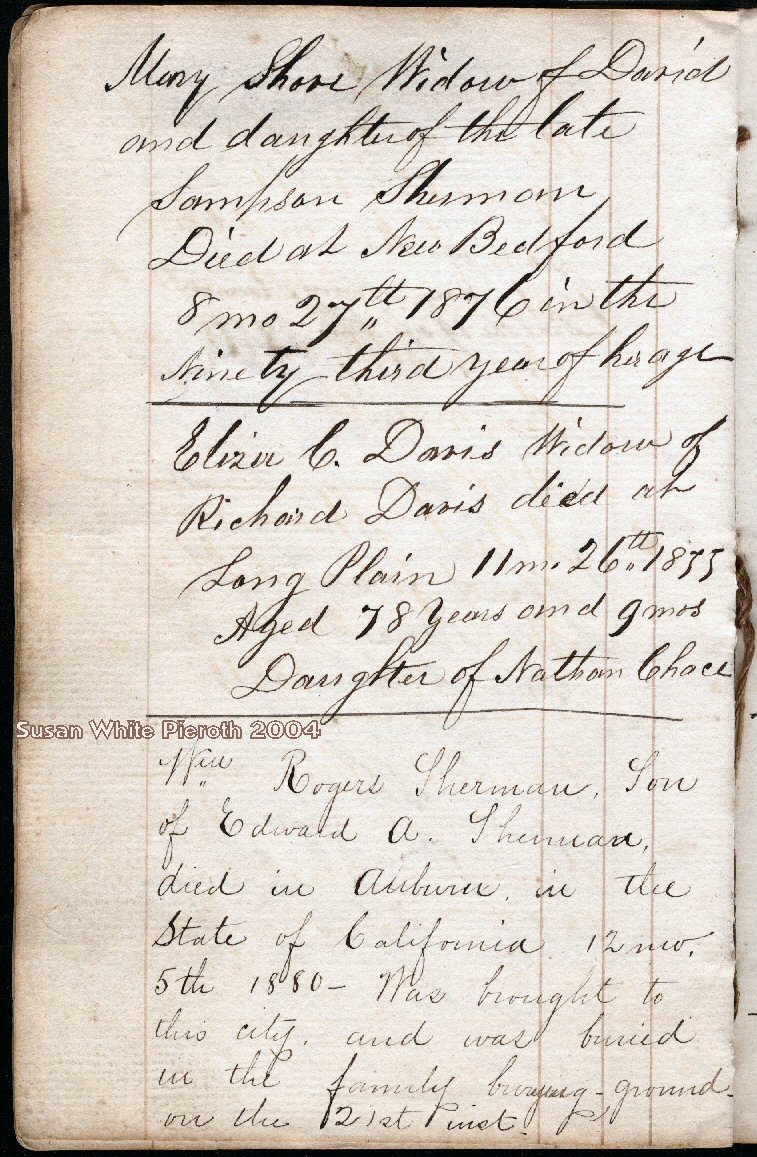 Mary Shove Widow of David
and daughter of the late
Sampson Sherman
Died at New Bedford
8 mo 27th 1876 in the
Ninety third year of her age
Eliza C. Davis Widow of
Richard Davis died at
Long Plain 11 mo. 26th 1855
Aged 78 Years and 9 mos
Daughter of Nathan Chace
Susan White Pieroth 2004
Wm Rogers Sherman, Son
of Edward A. Sherman,
died in Auburn, in the
State of California 12 mo.
5th 1880 - Was brought to
this city, and was buried
in the family burying-ground
on the 21st inst.